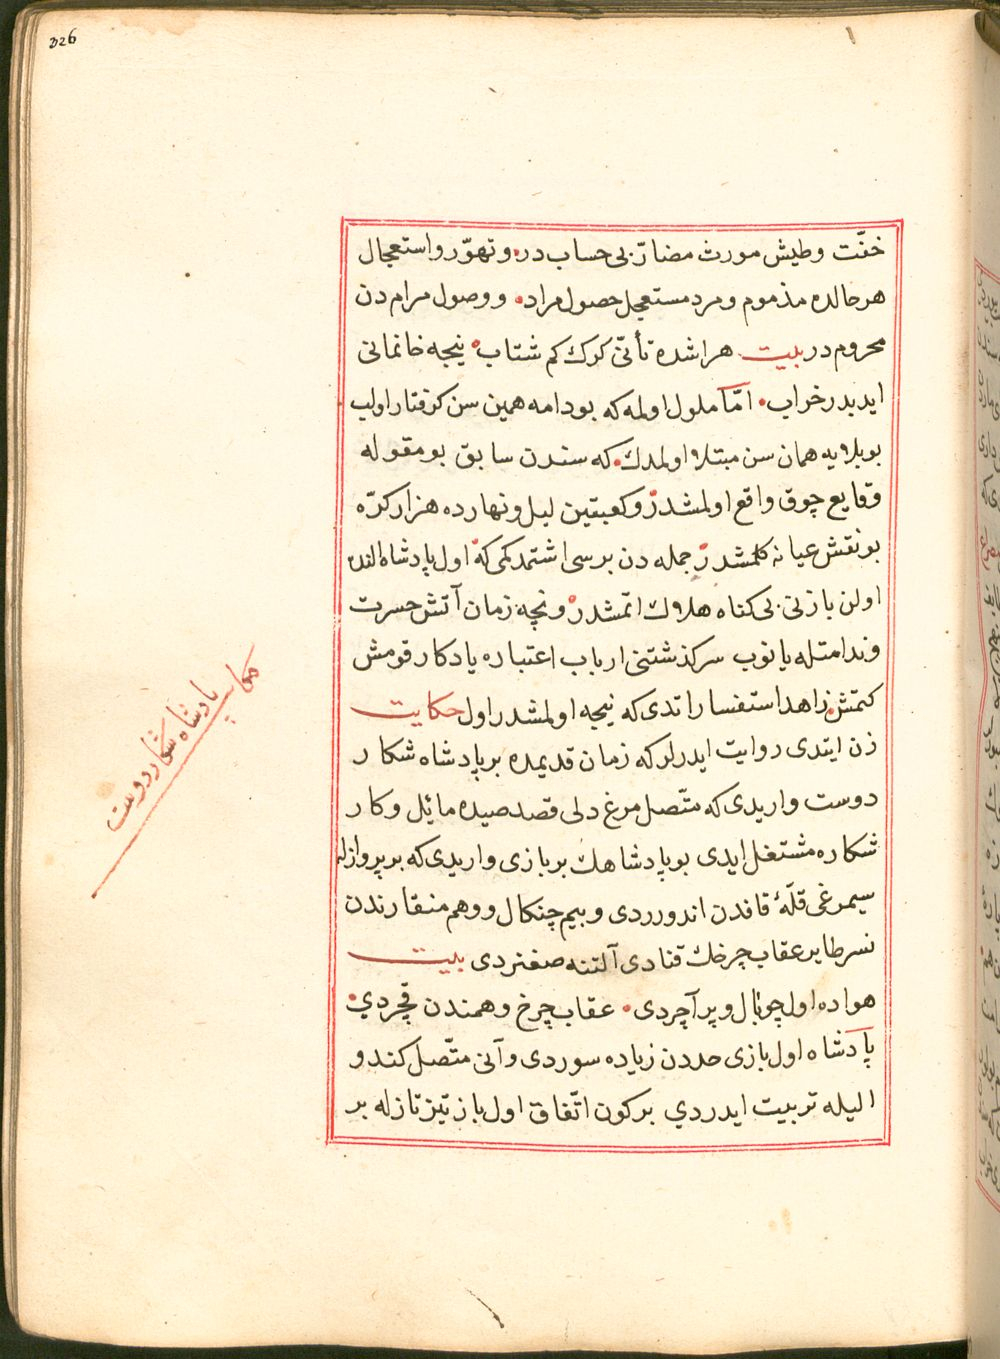 326
خفّت وطيش مورث مضارّ بى حساب در. وتهوّر واستعجال
هر حالده مذموم ومرد مستعجل حصول مراد. ووصول مرام دن
محروم در بيت هر اشده تأنّى كرك كم شتاب. نيجه خانمانى
ايدبدر خراب. امّا ملول اولمه كه بو دامه همين سن كرفتار اولب
بو بلايه همان سن مبتلا اولمدك. كه سندن سابق بو مقوله
وقايع چوق واقع اولمشدر. وكعبتين ليل ونهارده هزار كرّه
بو نقش عيانه كلمشدر. جمله دن برسى اشتمدكمى كه. اول پادشاه النده
اولن بازنى بى كناه هلاك اتمشدر. ونچه زمان آتش حسرت
وندامتله يانوب سركذشتنى ارباب اعتباره يادكار قومش
كتمش. زاهد استفسار اتدى كه نيجه اولمشدر اول حكايت
زن ايتدى روايت ايدرلر كه زمان قديمده بر پادشاه شكار
دوست واريدى كه متّصل مرغ دلى قصد صيده مائل وكار
شكاره مشتغل ايدى بو پادشاهك بر بازى واريدى كه بر پروازله
سيمرغى قلّهٔ قافدن اندوردى وبيم چنكال ووهم منقارندن
نسر طاير عقاب چرخك قنادى آلتنه صغنردى بيت
هواده اول چو بال وپر آچردى. عقاب چرخ وهمندن قچردي.
پادشاه اول بازى حددن زياده سوردى وآنى متّصل كندو
اليله تربيت ايدردي بر كون اتّفاق اول باز تيز تازله بر
حكايت پادشاه شكار دوست